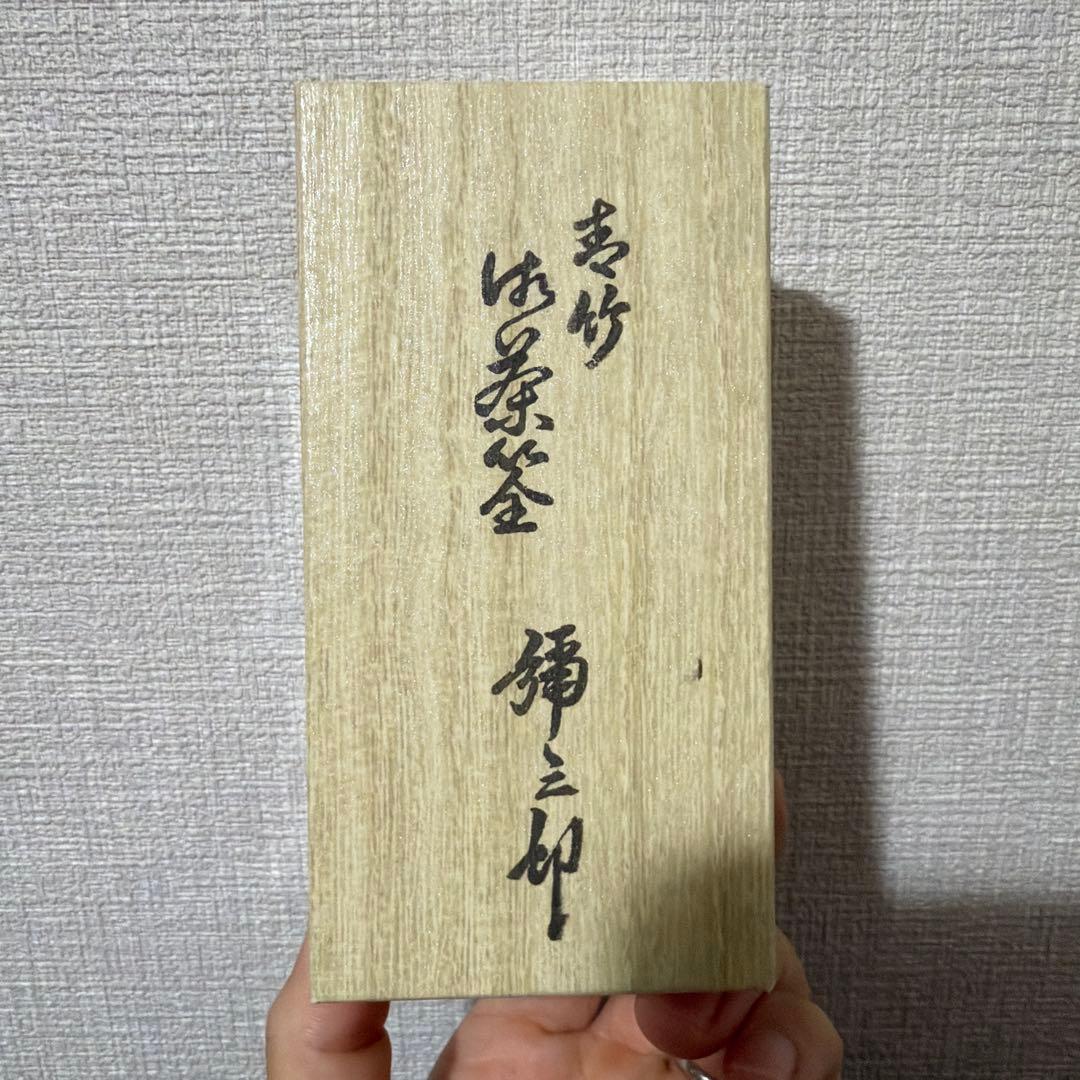 青竹
御茶筌
彌三郎